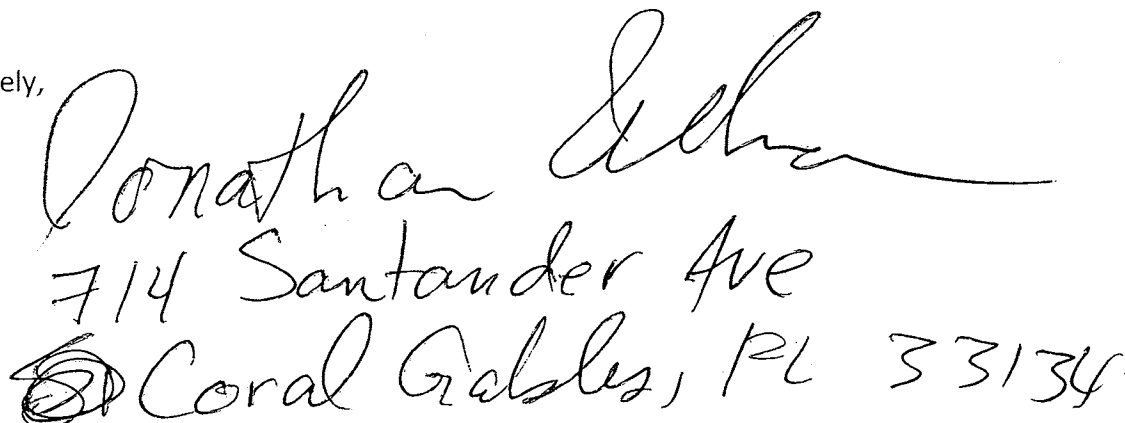 ely,
Jonathan
714 Santander Ave
Coral Gables, FL 33134